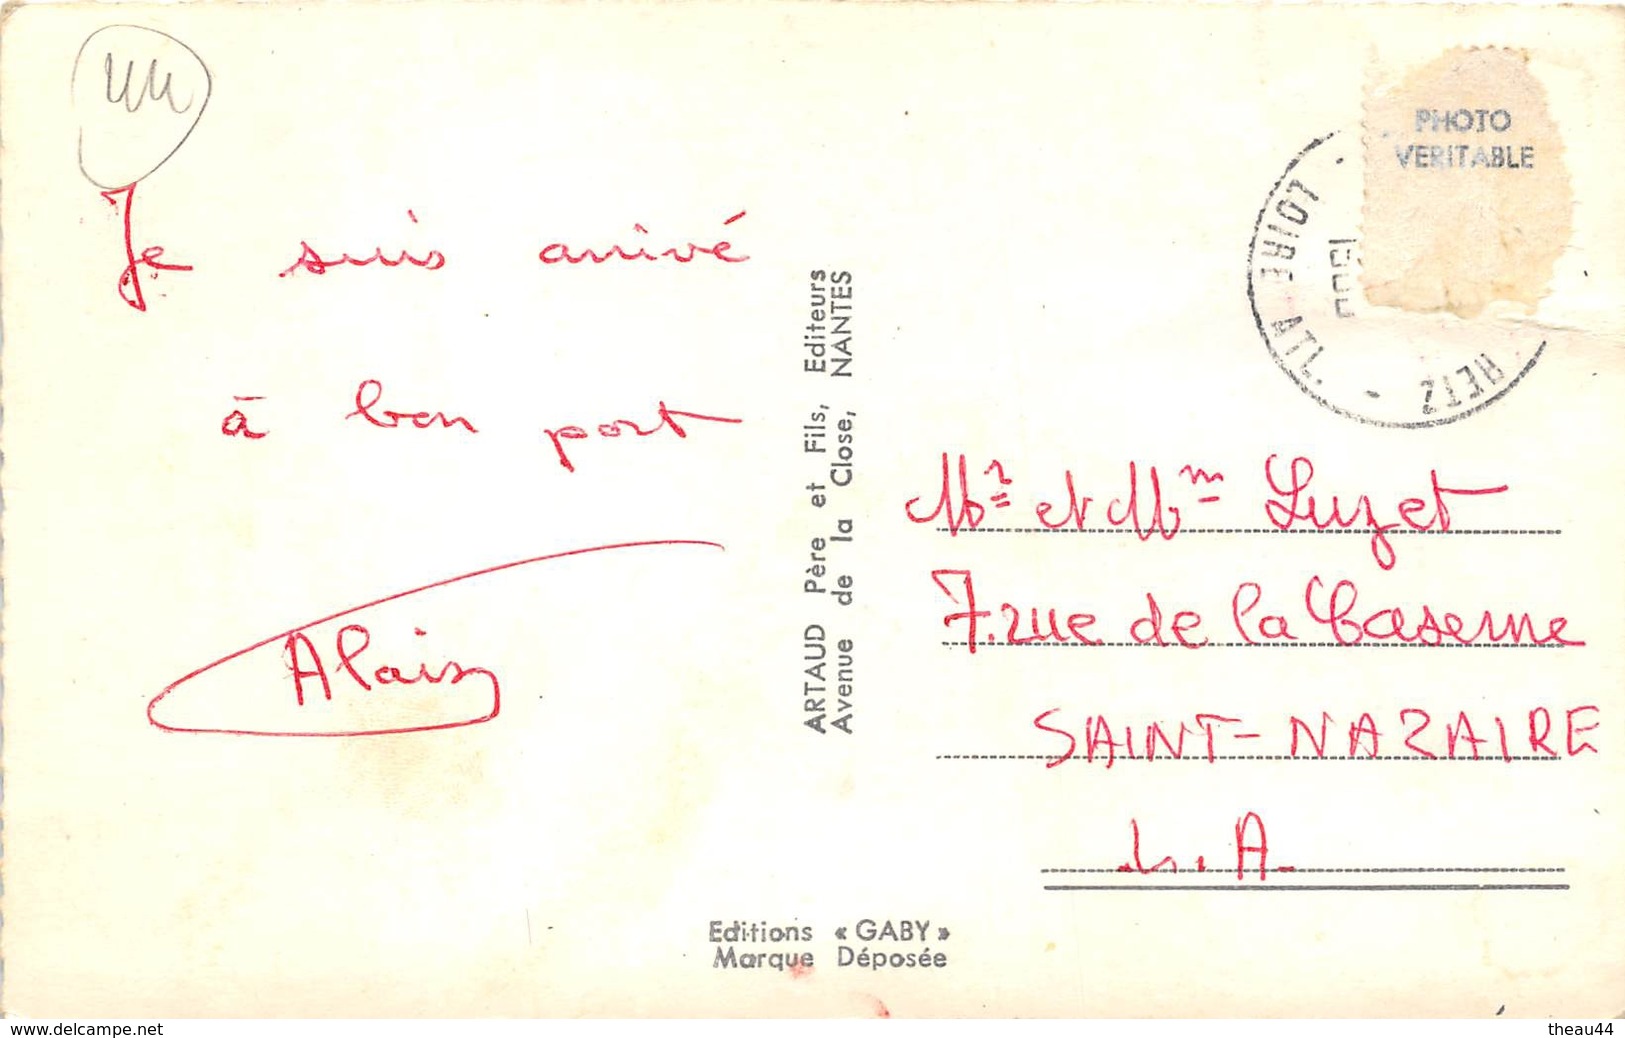 44
Je suis arrivé
à bon port
Alain
ARTAUD Père et Fils, Editeurs
Avenue de la Close, NANTES
PHOTO
VERITABLE
RETZ - LOIRE ATL.
Mr et Mm Luzet
7. rue de la Caserne
SAINT-NAZAIRE
L.A.
Editions « GABY »
Marque Déposée
www.delcampe.net
theau44